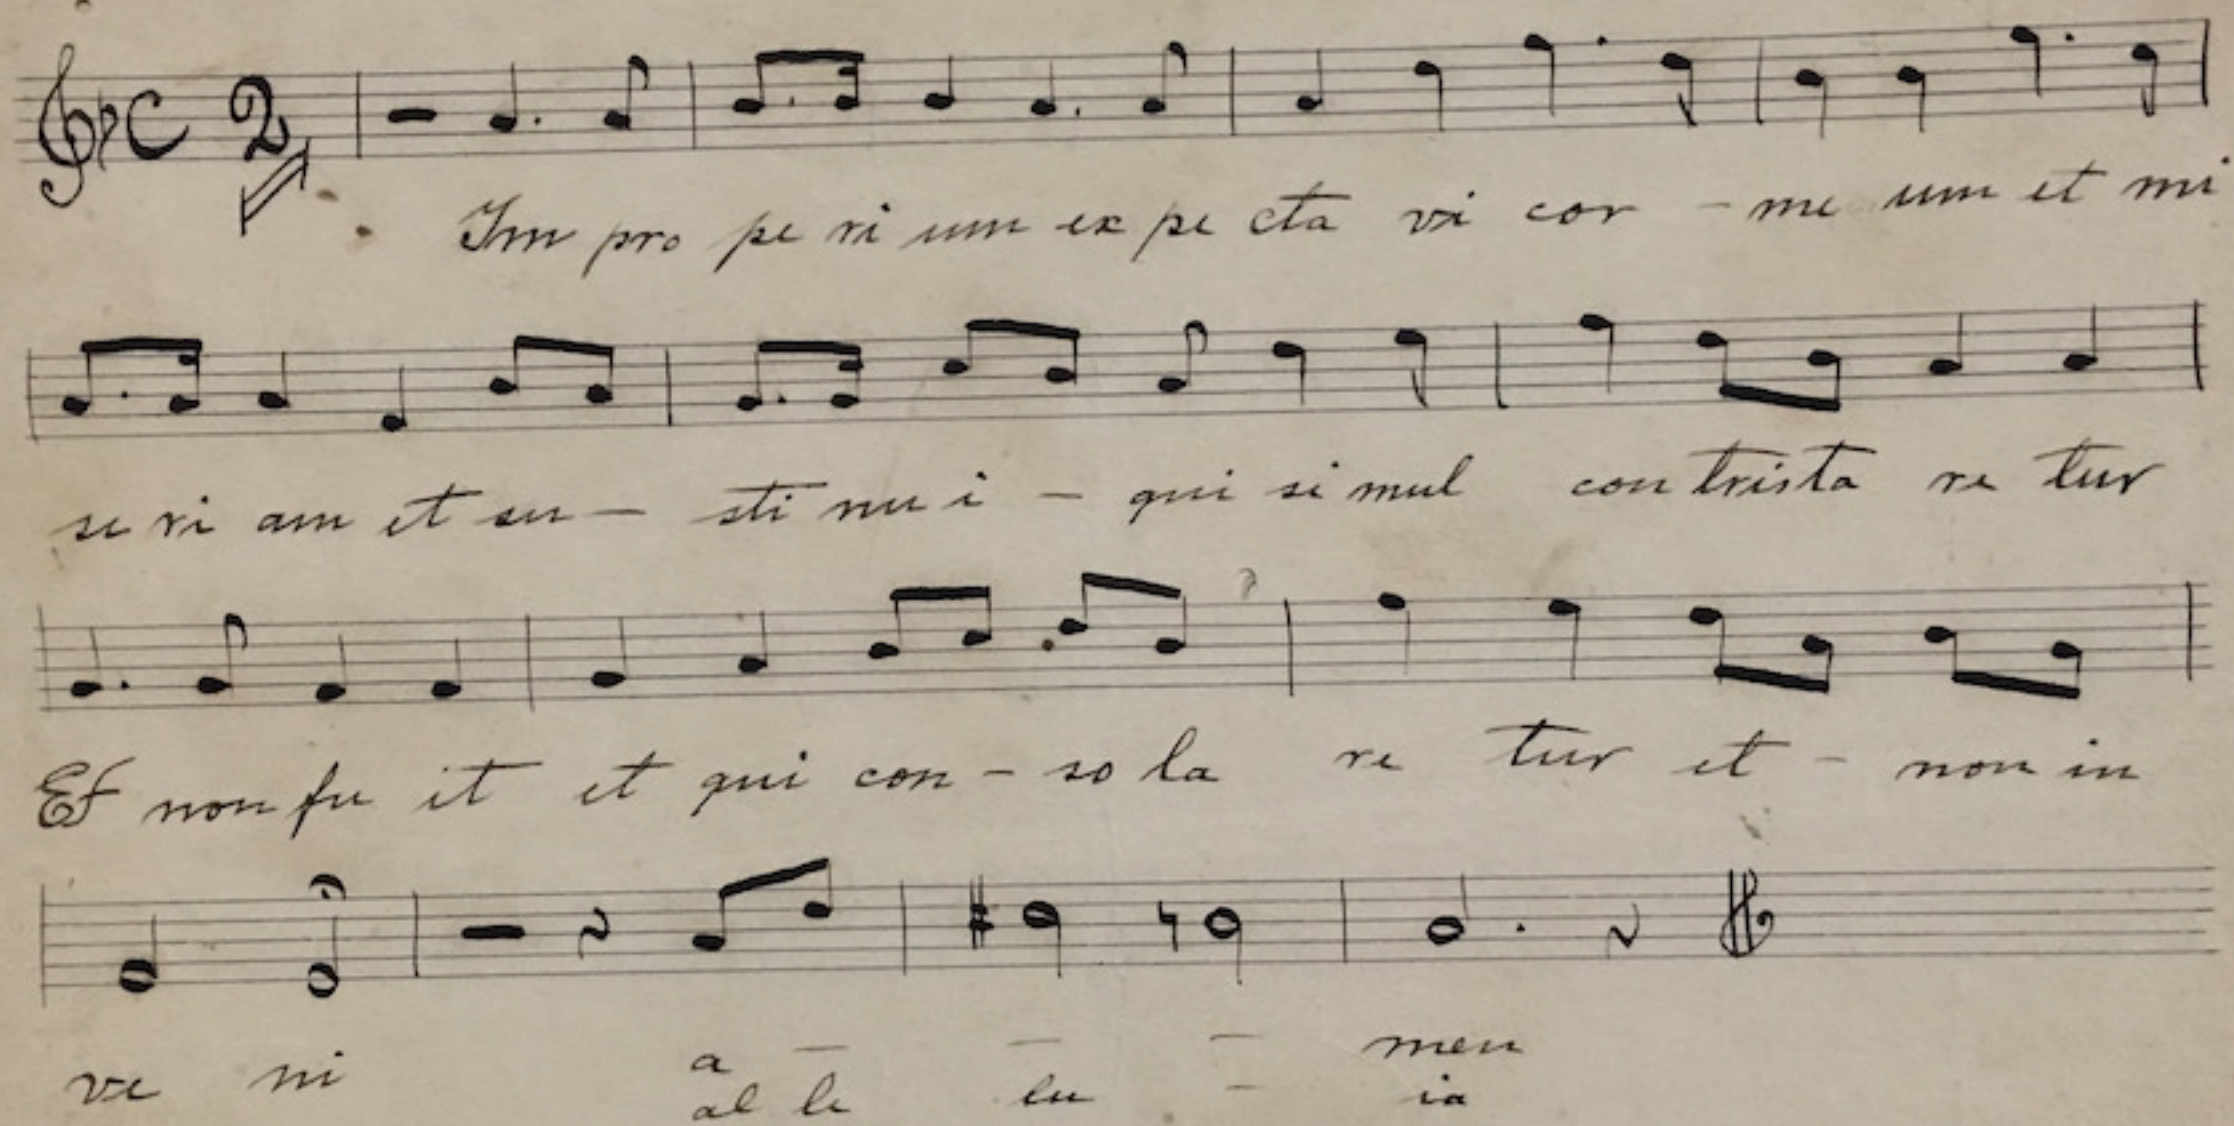 C 2
Im pro pe ri um ex pe cta vi cor - me um et mi
se ri am et su - sti nu i - qui si mul con trista re tur
Et non fu it et qui con - so la re tur et - non in
ve ni a - - - men
al le lu - ia